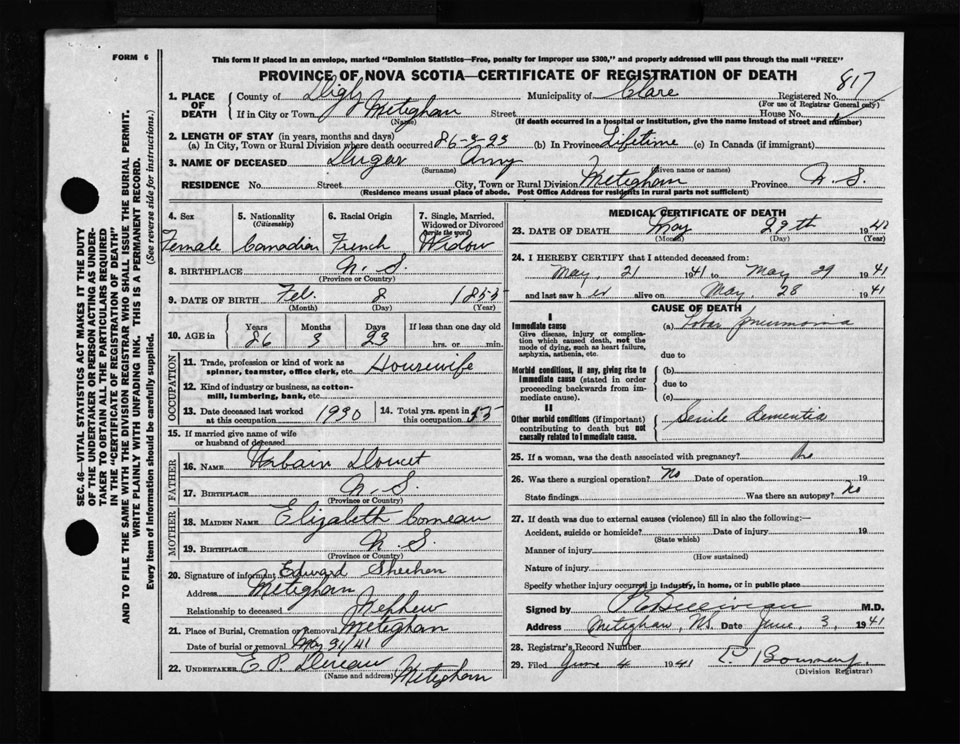 FORM 6
This form if placed in an envelope, marked "Dominion Statistics—Free, penalty for improper use $300," and properly addressed will pass through the mail "FREE"
PROVINCE OF NOVA SCOTIA—CERTIFICATE OF REGISTRATION OF DEATH
817
1. PLACE OF DEATH County of Digby Municipality of Clare Registered No.
(For use of Registrar General only)
If in City or Town Meteghan Street House No.
(Name) (If death occurred in a hospital or institution, give the name instead of street and number)
2. LENGTH OF STAY (in years, months and days)
(a) In City, Town or Rural Division where death occurred 86-3-23 (b) In Province Lifetime (c) In Canada (if immigrant)
3. NAME OF DECEASED Dugas Amy
(Surname) (Given name or names)
RESIDENCE No. Street City, Town or Rural Division Meteghan Province N. S.
(Residence means usual place of abode. Post Office Address for residents in rural parts not sufficient)
SEC. 46—VITAL STATISTICS ACT MAKES IT THE DUTY
OF THE UNDERTAKER OR PERSON ACTING AS UNDER-
TAKER TO OBTAIN ALL THE PARTICULARS REQUIRED
IN THE "CERTIFICATE OF REGISTRATION OF DEATH"
AND TO FILE THE SAME WITH THE DIVISION REGISTRAR WHO SHALL ISSUE THE BURIAL PERMIT.
WRITE PLAINLY WITH UNFADING INK. THIS IS A PERMANENT RECORD.
Every item of information should be carefully supplied. (See reverse side for instructions.)
4. Sex 5. Nationality (Citizenship) 6. Racial Origin 7. Single, Married, Widowed or Divorced (write the word)
Female Canadian French Widow
8. BIRTHPLACE N. S.
(Province or Country)
9. DATE OF BIRTH Feb. 8 1855
(Month) (Day) (Year)
10. AGE in Years Months Days If less than one day old
86 3 23 hrs. or min.
OCCUPATION
11. Trade, profession or kind of work as spinner, teamster, office clerk, etc. Housewife
12. Kind of industry or business, as cotton-mill, lumbering, bank, etc.
13. Date deceased last worked at this occupation 1930 14. Total yrs. spent in this occupation 55
15. If married give name of wife or husband of deceased
FATHER
16. NAME Urbain Doucet
17. BIRTHPLACE N. S.
(Province or Country)
MOTHER
18. MAIDEN NAME Elizabeth Comeau
19. BIRTHPLACE N. S.
(Province or Country)
20. Signature of informant Edward Sheehan
Address Meteghan
Relationship to deceased Nephew
21. Place of Burial, Cremation or Removal Meteghan
Date of burial or removal May 31/41
22. UNDERTAKER E. P. Meteghan
(Name and address)
MEDICAL CERTIFICATE OF DEATH
23. DATE OF DEATH May 29th 19
(Month) (Day) (Year)
24. I HEREBY CERTIFY that I attended deceased from:
May, 21 1941 to May 29 1941
and last saw her alive on May, 28 1941
CAUSE OF DEATH
I
Immediate cause
Give disease, injury or complication which caused death, not the mode of dying, such as heart failure, asphyxia, asthenia, etc.
(a) Lobar pneumonia
due to
Morbid conditions, if any, giving rise to immediate cause (stated in order proceeding backwards from immediate cause).
(b)
due to
(c)
II
Other morbid conditions (if important) contributing to death but not causally related to immediate cause.
Senile Dementia
25. If a woman, was the death associated with pregnancy? no
26. Was there a surgical operation? No Date of operation 19
State findings Was there an autopsy? No
27. If death was due to external causes (violence) fill in also the following:—
Accident, suicide or homicide? Date of injury 19
(State which)
Manner of injury
(How sustained)
Nature of injury
Specify whether injury occurred in industry, in home, or in public place
Signed by M.D.
Address Meteghan, NS. Date June, 3, 1941
28. Registrar's Record Number
29. Filed June 4 1941
(Division Registrar)